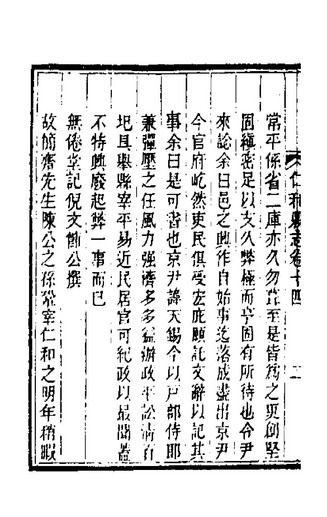 仁和縣志卷十四
常平係省二庫亦久勿葺至是皆為之更創堅
固縝密足以支久弊極而亨固有所待也令尹
來諗余曰邑之興作自始事迄落成盡出京尹
今官府屹然吏民俱受宏庇願記文辭以記其
事余曰是可書也京尹蔣天錫今以戶部侍郎
兼彈壓之任風力強濟多多益辦政平訟清百
圮具舉縣宰平易近民居官可紀政以最聞蓋
不特興廢起弊一事而已
無倦堂記倪文節公撰
故簡齋先生陳公之係常宰仁和之明年稍暇